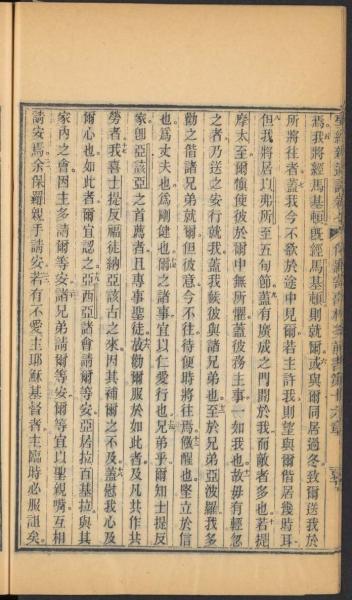 焉我將經馬基頓既經馬基頓則就爾或與爾同居過冬致爾送我於
所將往者蓋我今不欲於途中見爾若主許我則望與爾偕居幾時耳
但我將居以弗所至五旬節蓋有廣成之門開於我而敵者多也若提
摩太至爾慎使彼於爾中無所懼蓋彼務主事一如我也故毋有輕忽
之者乃送之安行就我蓋我候彼與諸兄弟也至於兄弟亞波羅我多
勸之偕諸兄弟就爾但彼意今不往待便時將往焉儆醒也堅立於信
也為丈夫也為剛健也爾之諸事宜以仁愛行也兄弟乎爾知士提反
家卽亞該亞之首薦者且專事聖徒故勸爾服於如此者及凡共作共
勞者我喜士提反福徒納亞該古之來因其補爾之不及蓋慰我心及
爾心也如此者爾宜認之亞西亞諸會請爾等安亞居拉百基拉與其
家內之會因主多請爾等安諸兄弟請爾等安爾等宜以聖親嘴互相
請安焉余保羅親手請安若有不愛主耶穌基督者主臨時必服詛矣